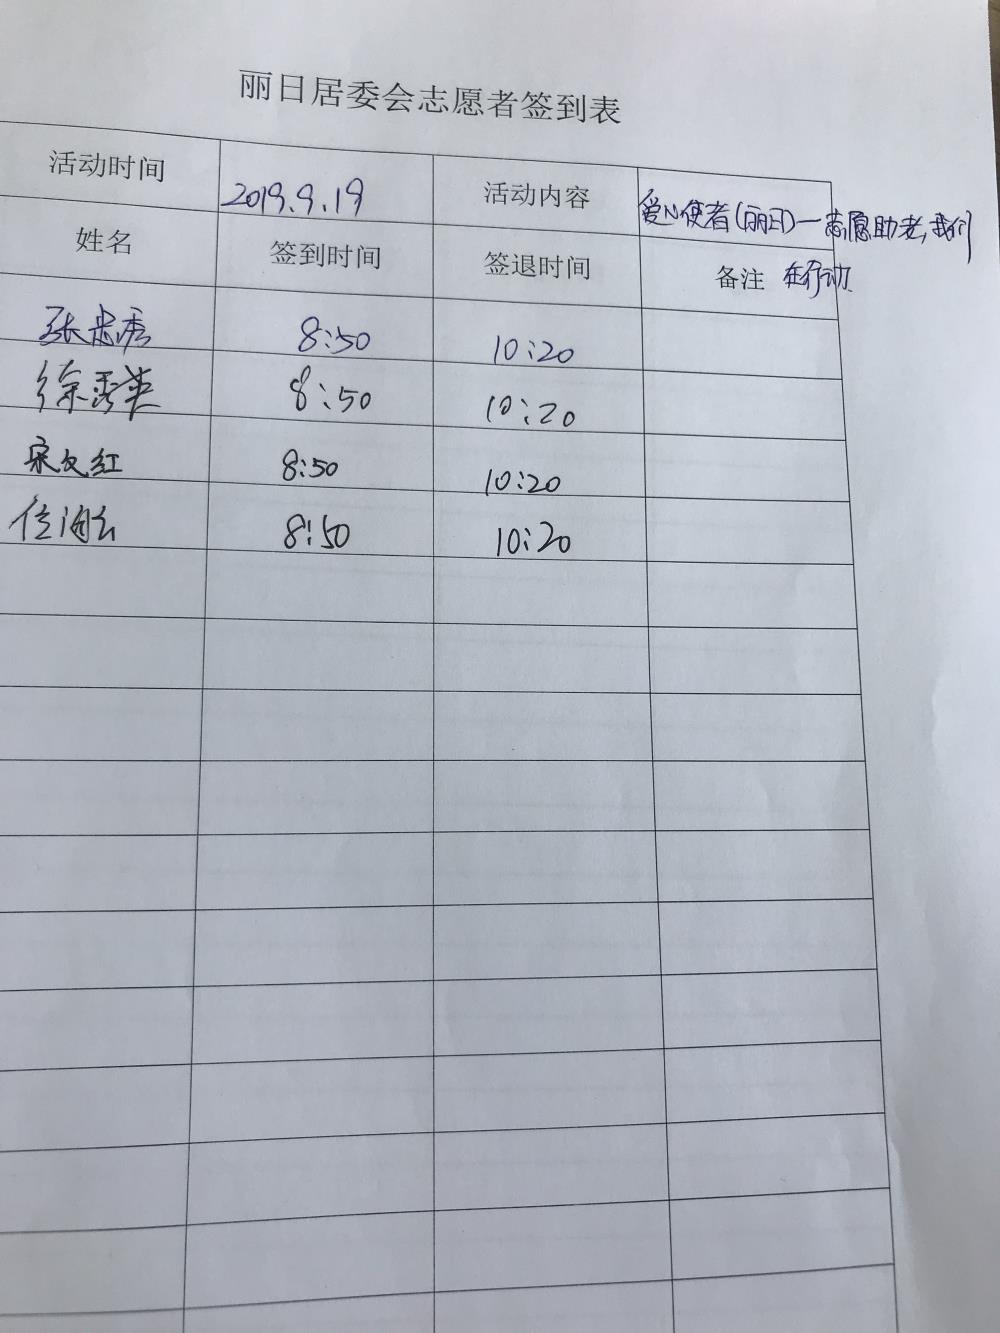 丽日居委会志愿者签到表
活动时间 2019.9.19 活动内容 爱心使者(丽日)一志愿助老,我们
在行动
姓名 签到时间 签退时间 备注
8:50 10:20
8:50 10:20
宋文红 8:50 10:20
8:50 10:20